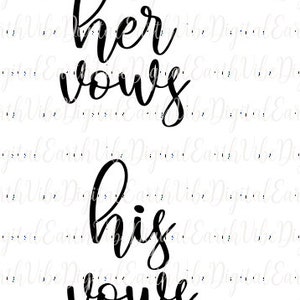 her
vows
his
vows